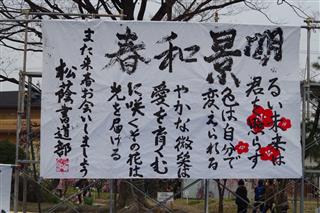 明るい未来は
君を照らす
景色は自分で
変えられる
和やかな微笑は
愛を育む
春に咲くその花は
光を届ける
また来春お会いしましょう
松蔭書道部